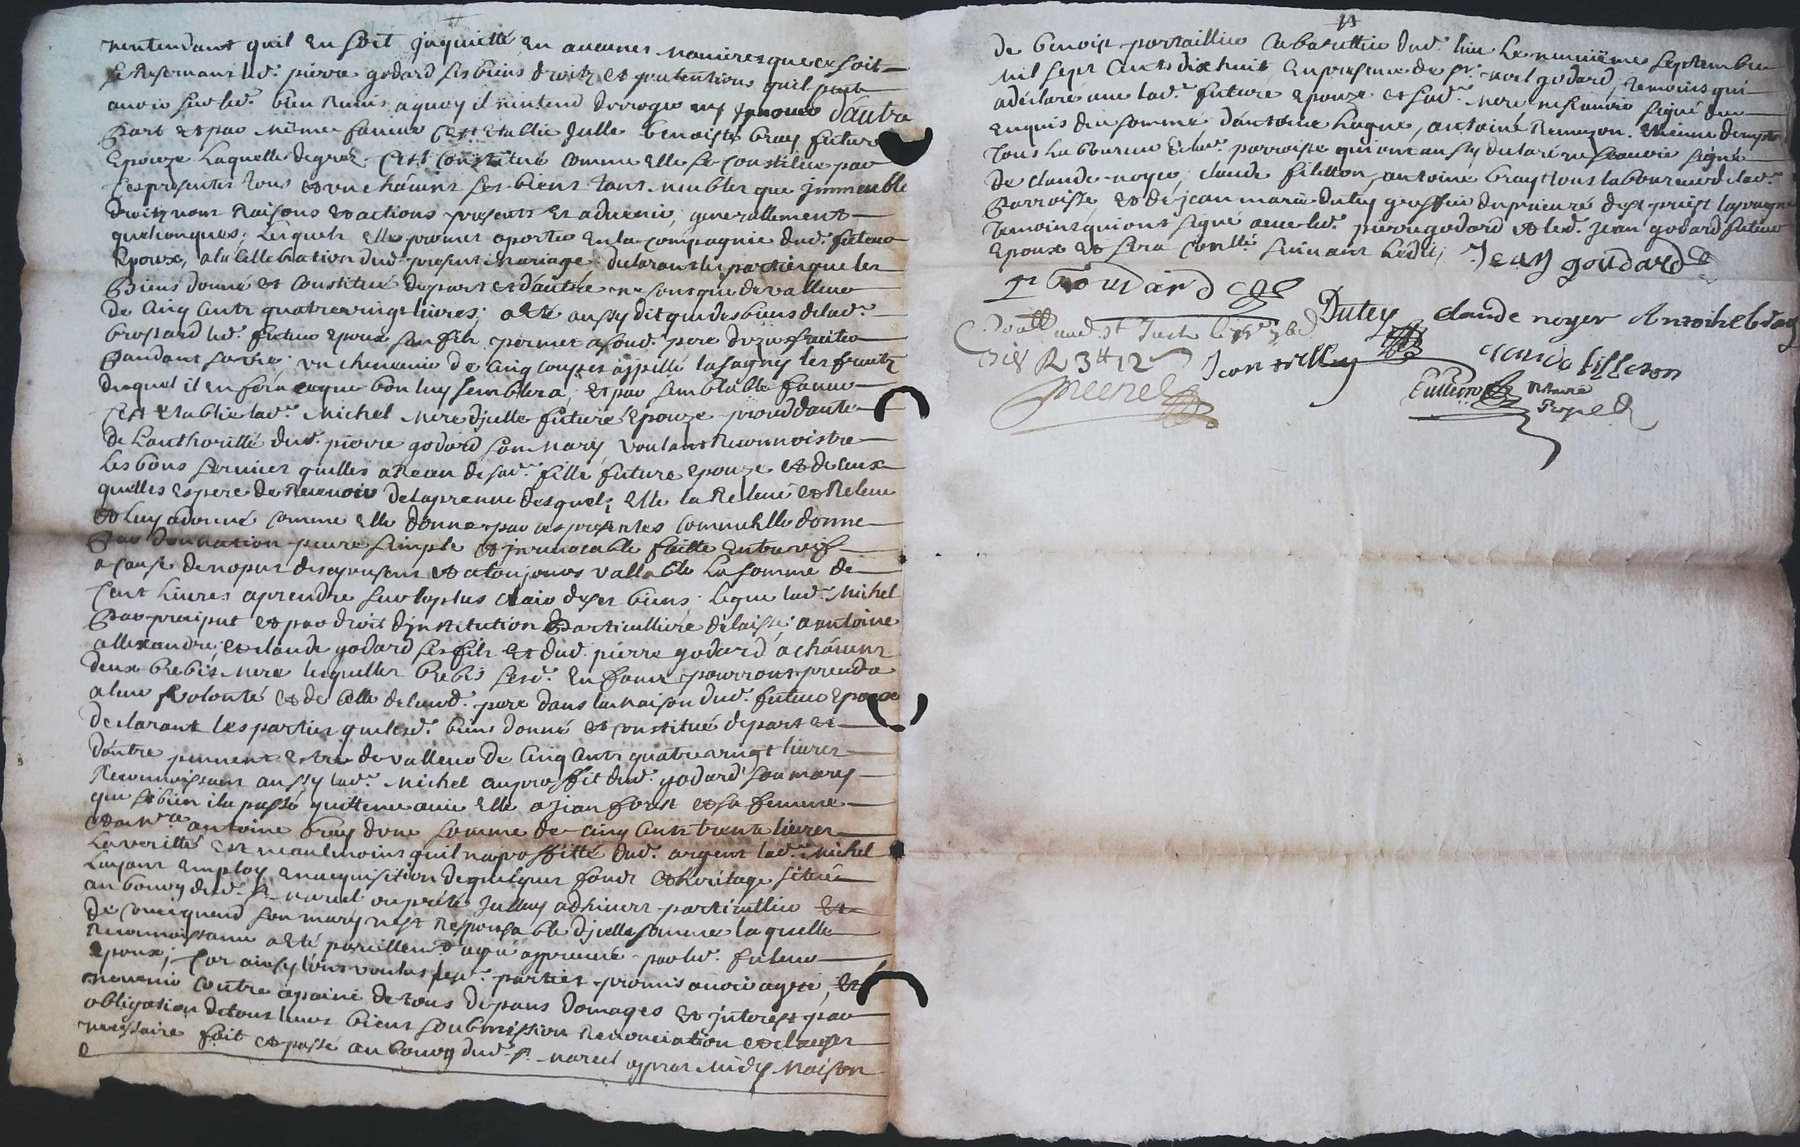 nentendant quil en soit jnquietté en aucunes manieres que ce soit
se Reservant led. pierre godard ses biens droits et pretentions quil peut
avoir sur lad. bien Remis a quoy il nentend deroger ny jnover d'autre
Part et par mesme faveur s'est Etablie Julle benoiste bray future
Epouze laquelle degrez s'est Constitué comme elle se constitue par
Ces presentes tous et un châcuns ses biens tant meubles que jmmeuble
droits noms Raisons et actions presents et advenir, generallement
quelconques; lesquels elle promet aporter en la compagnie dud. futeur
Epoux, a la Cellebration dud. present Mariage. declarant les parties que les
Biens donné et Constitué de part et d'autre ne sont que de valleur
de Cinq Cents quatrevingt livres; a eté aussy dit que des biens de lad.
brossard led. futeur Epoux son fils permet a sond. pere de jouir
Pandant sa vie un chenevier de cinq coupes appellé lasagny les fruits
duquel il en fera ce que bon luy semblera; et par semblable faveur
s'est etablie lad. Michel mere de Julle future Epouze procedante
de Lauthorité dud. pierre godard son mary voulant Reconnoistre
Les bons services quelles a Receu de sad. fille future Epouze et de ceux
quelles espere de Recevoir de la preuve desquels Elle la Relevé et Releve
et luy a donné comme Elle donne par ces presentes comme Elle donne
Par donnation pure simple et jrrevocable faitte entre vif
a cause de nopces et a toujours vallable La somme de
Cent livres a prendre sur le plus clair de ses biens. legue lad. Michel
Par preciput et par droit d'jnstitution Particulliere délaissé a antoine
allexandre, et claude godard ses fils et dud. pierre godard a châcuns
deux brebis mere lesquelles brebis sesd. Enfants pourront prendre
a leur volonté et de Celle de leurd. pere dans la maison dud. futeur Epoux
declarant les parties que lesd. biens donné et constitué de part et
dautre peuvent estre de valleur de Cinq Cents quatrevingt livres
Reconnoissant aussy lad. Michel au proffit dud. godard son mary
que si bien il a passé quittence avec Elle a jean forest et sa femme
et a Me antoine bray d'une somme de cinq Cents trente livres
La verité est neaulmoins quil na proffitté dud. argent lad. Michel
Layant Employ en acquisition de quelques fonds et heritage situé
au bourg dud. St. marcel
De ce que quand son mary n'est Responsable d'jcelle somme laquelle
Reconnoissance a eté pareillement agreé approuvé par led. futeur
Epoux; Car ainsy l'ont voulus lesd. parties promis avoir agreé, et
ne venir contre a paine de tous depans domages et jnterest par
obligation de tous leurs biens soubmission Renonciation et clauzes
necessaire fait et passé au bourg dud. St. marcel apres midy Maison
de benoist portaillier Cabarettier dud. lieu le neuviême septembre
Mil sept Cents dixhuit En presence de Sr. noel godard, temoins qui
a déclaré avec lad. future epouze et sad. Mere ne sçavoir signé de ce
Enquis de somme d'antoine hugue, antoine Remuzon. Etienne
tous laboureur de lad. parroisse qui ont aussy declaré ne sçavoir signé
De claude noyer, claude filliton, antoine bray tous laboureur de lad.
Parroisse, et de jean marie dutey greffier du prieuré de St. priest
temoins qui ont signé avec led. pierre godard et led. jean godard futeur
Epoux et sera Conllé suivant L'edit; Jean goudard
P goudard
Dutey claude noyer Antoine bray
Conllé au d. St Just le 15e 7bre
1718 R 3# 12s
claude filliton
notaire
Royal